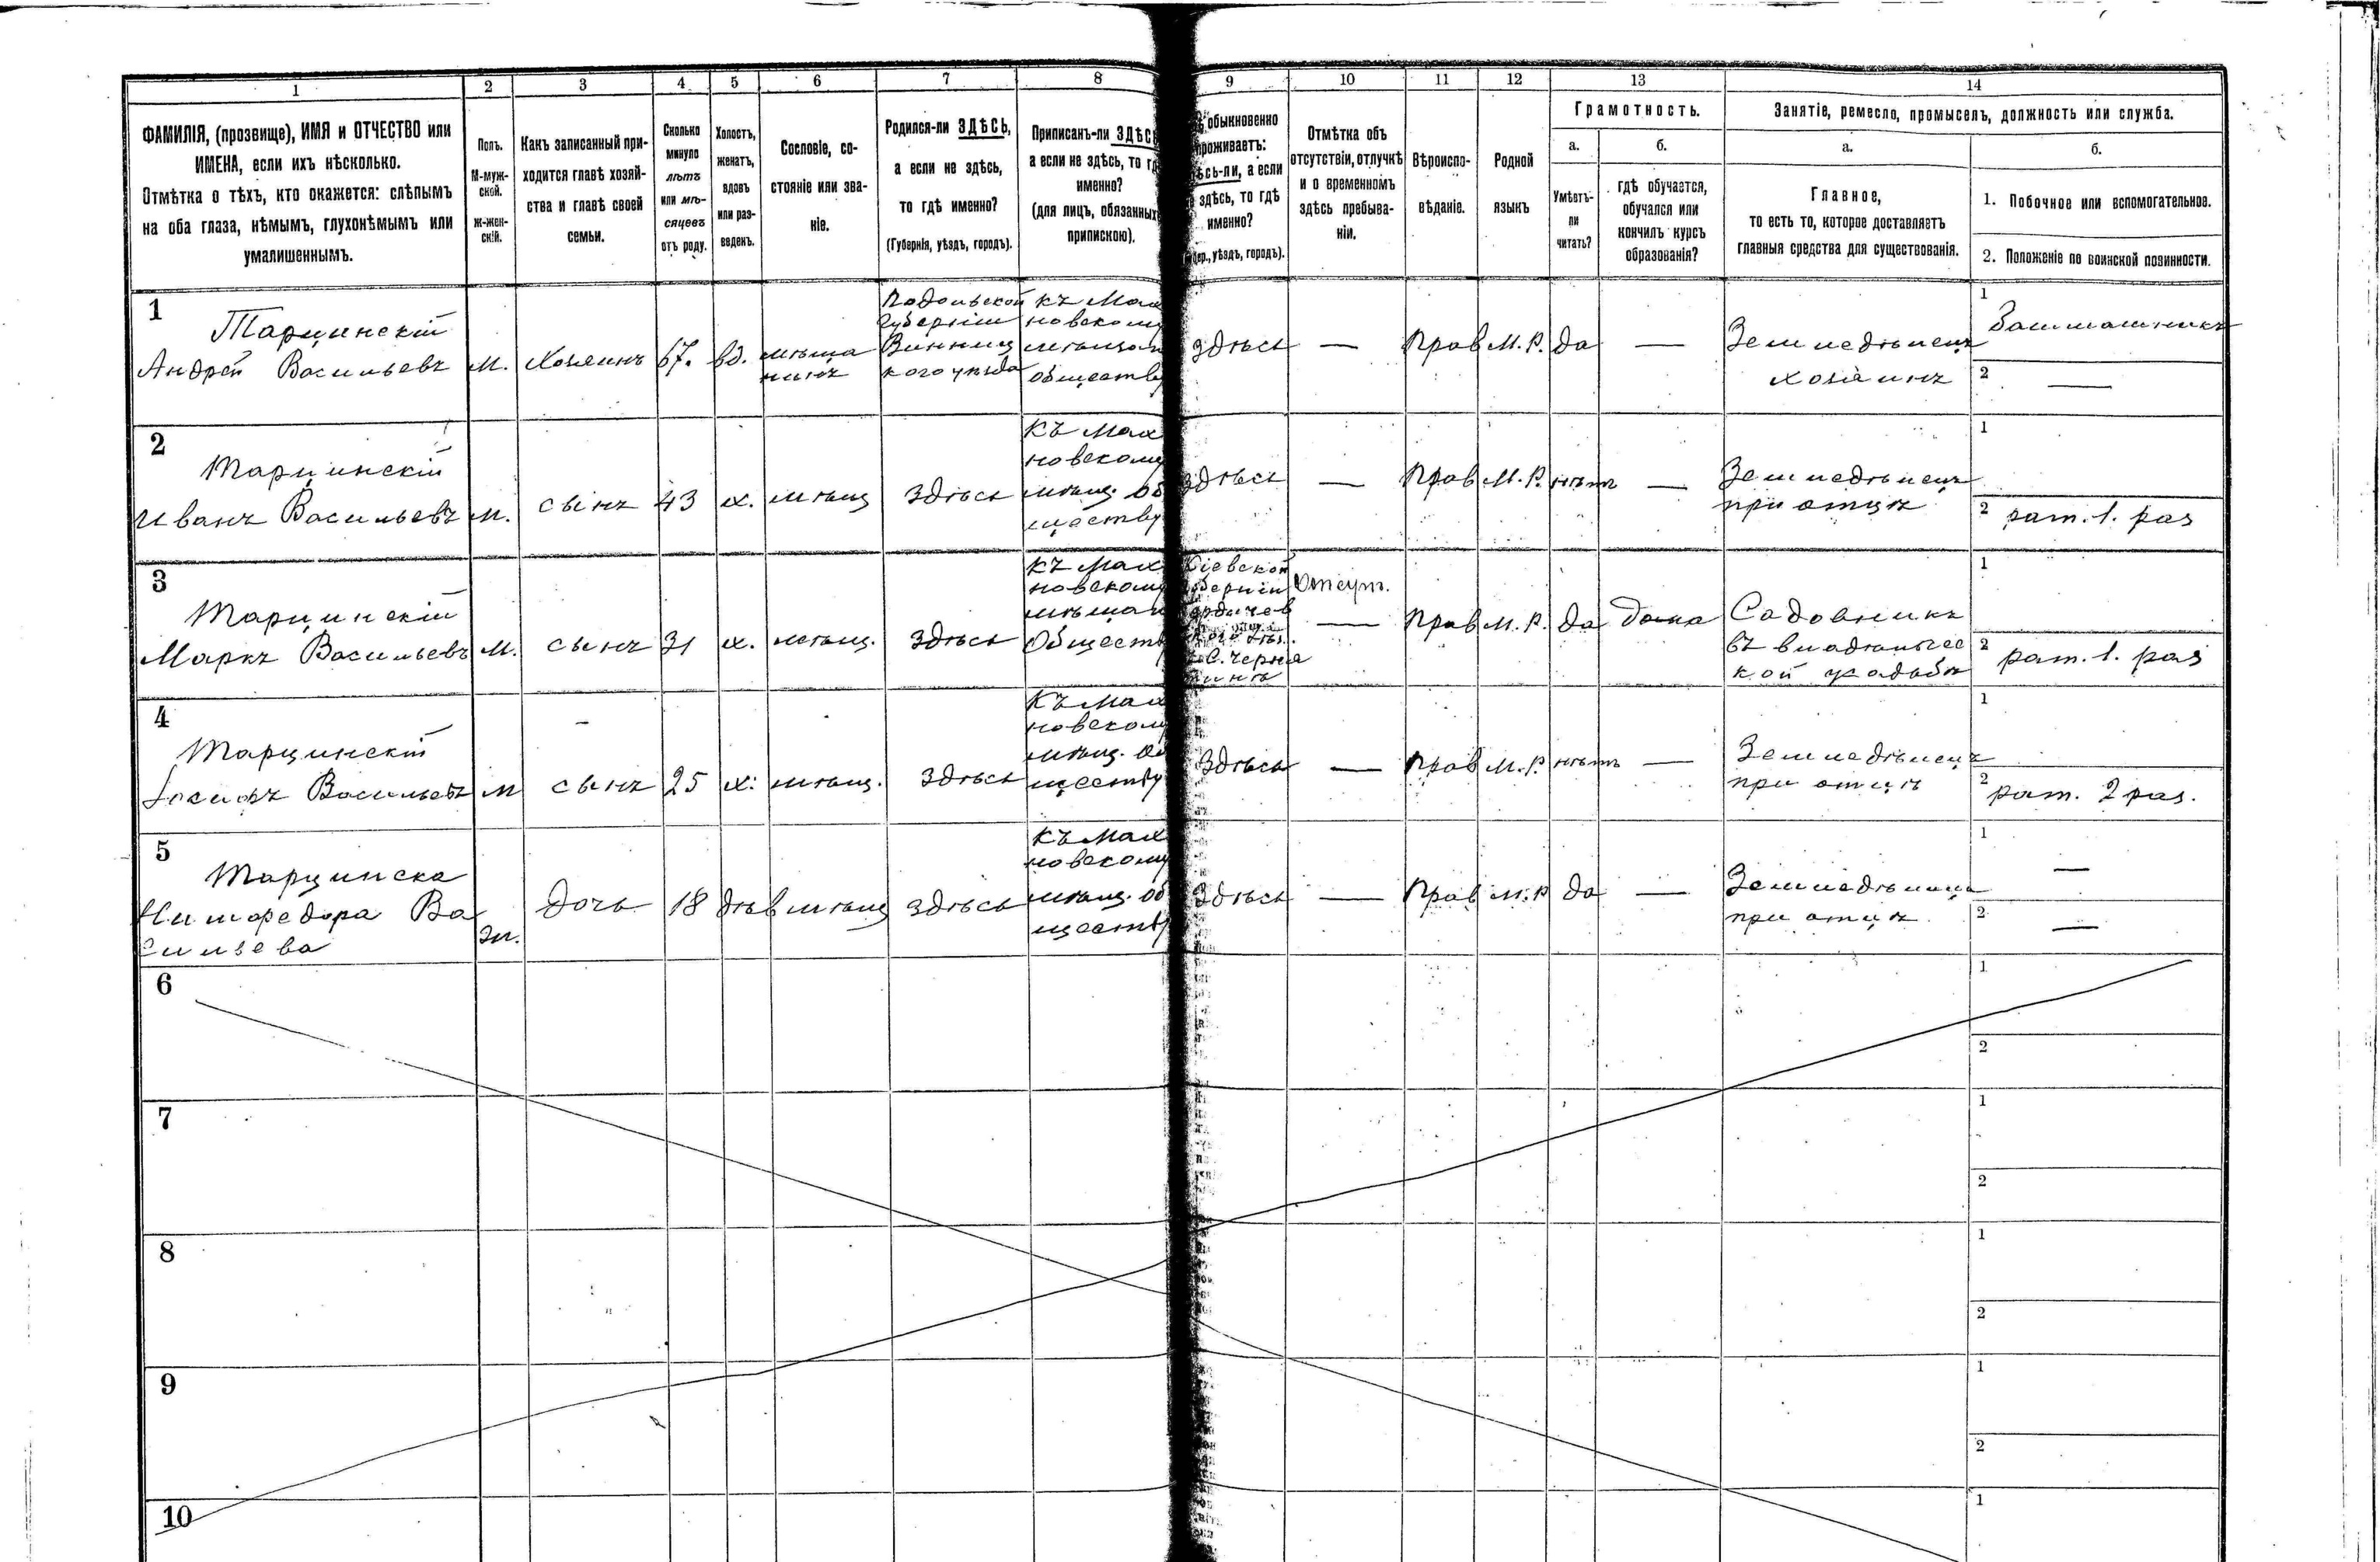 1 2 3 4 5 6 7 8 9 10 11 12 13 14
ФАМИЛІЯ, (прозвище), ИМЯ и ОТЧЕСТВО или
ИМЕНА, если ихъ нѣсколько.
Отмѣтка о тѣхъ, кто окажется: слѣпымъ
на оба глаза, нѣмымъ, глухонѣмымъ или
умалишеннымъ.
Полъ.
М-муж-
ской.
Ж-жен-
скій.
Какъ записанный при-
ходится главѣ хозяй-
ства и главѣ своей
семьи.
Сколько
минуло
лѣтъ
или мѣ-
сяцевъ
отъ роду.
Холостъ,
женатъ,
вдовъ
или раз-
веденъ.
Сословіе, со-
стояніе или зва-
ніе.
Родился-ли ЗДѢСЬ,
а если не здѣсь,
то гдѣ именно?
(Губернія, уѣздъ, городъ).
Приписанъ-ли ЗДѢСЬ
а если не здѣсь, то гд
именно?
(для лицъ, обязанныхъ
припискою).
обыкновенно
роживаетъ:
сь-ли, а если
здѣсь, то гдѣ
именно?
уѣздъ, городъ).
Отмѣтка объ
отсутствіи, отлучкѣ
и о временномъ
здѣсь пребыва-
ніи.
Вѣроиспо-
вѣданіе.
Родной
языкъ
Грамотность.
а.
Умѣетъ-
ли
читать?
б.
гдѣ обучается,
обучался или
кончилъ курсъ
образованія?
Занятіе, ремесло, промыселъ, должность или служба.
а.
Главное,
то есть то, которое доставляетъ
главныя средства для существованія.
б.
1. Побочное или вспомогательное.
2. Положеніе по воинской повинности.
1
Тарцинскій
Андрей Васильевъ
м.
Хозяинъ
67.
вд.
мѣща
нинъ
Подольской
губерніи
Винниц
кого уѣзда
къ Мах
новскому
мѣщан
обществу
здѣсь
—
Прав
М. Р.
да
—
Земледѣлецъ
хозяинъ
1 башмашникъ
2 —
2
Тарцинскій
Иванъ Васильевъ
м.
сынъ
43
х.
мѣщ
здѣсь
къ Мах
новскому
мѣщ. об
ществу
здѣсь
—
Прав
М. Р.
нѣтъ
—
Земледѣлецъ
при отцѣ
1
2 рат. 1. раз
3
Тарцинскій
Маркъ Васильевъ
м.
сынъ
31
х.
мѣщ.
здѣсь
къ Мах
новскому
мѣщан
Обществ
Кіевской
губерніи
Бердичев
С. Черня
тинъ
Отсут.
—
Прав
М. Р.
да
дома
Садовникъ
въ владѣльчес
кой усадьбѣ
1
2 рат. 1. раз
4
Тарцинскій
Іосифъ Васильевъ
м
сынъ
25
х.
мѣщ.
здѣсь
къ Мах
новскому
мѣщ. об
ществу
здѣсь
—
Прав
М. Р.
нѣтъ
—
Земледѣлецъ
при отцѣ
1
2 рат. 2 раз.
5
Тарцинска
Нимфодора Ва
сильева
ж.
дочь
18
дѣв
мѣщ
здѣсь
къ Мах
новскому
мѣщ. об
ществу
здѣсь
—
Прав
М. Р
да
—
Земледѣлица
при отцѣ
1 —
2 —
6
1
2
7
1
2
8
1
2
9
1
2
10
1